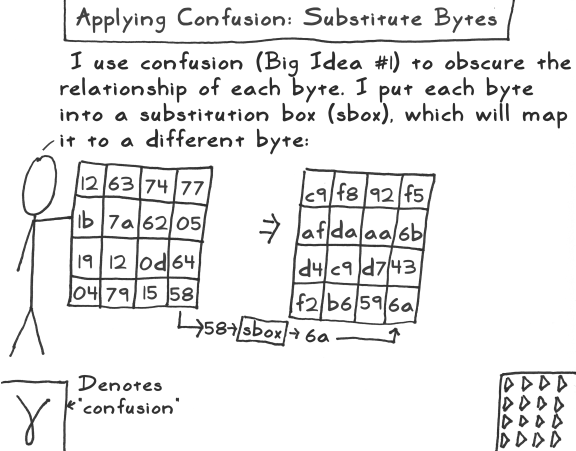 Applying Confusion: Substitute Bytes
I use confusion (Big Idea #1) to obscure the
relationship of each byte. I put each byte
into a substitution box (sbox), which will map
it to a different byte:
12 63 74 77
1b 7a 62 05
19 12 0d 64
04 79 15 58
⇒
c9 f8 92 f5
af da aa 6b
d4 c9 d7 43
f2 b6 59 6a
58→sbox→6a
Denotes
"confusion"
γ